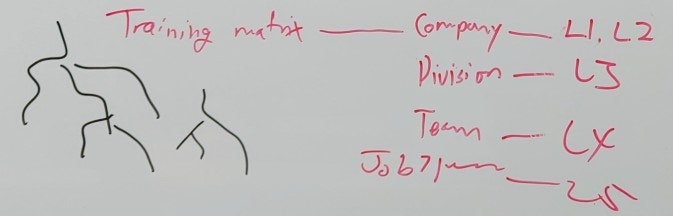 Training matrix — Company — L1, L2
Division — L3
Team — LX
Job